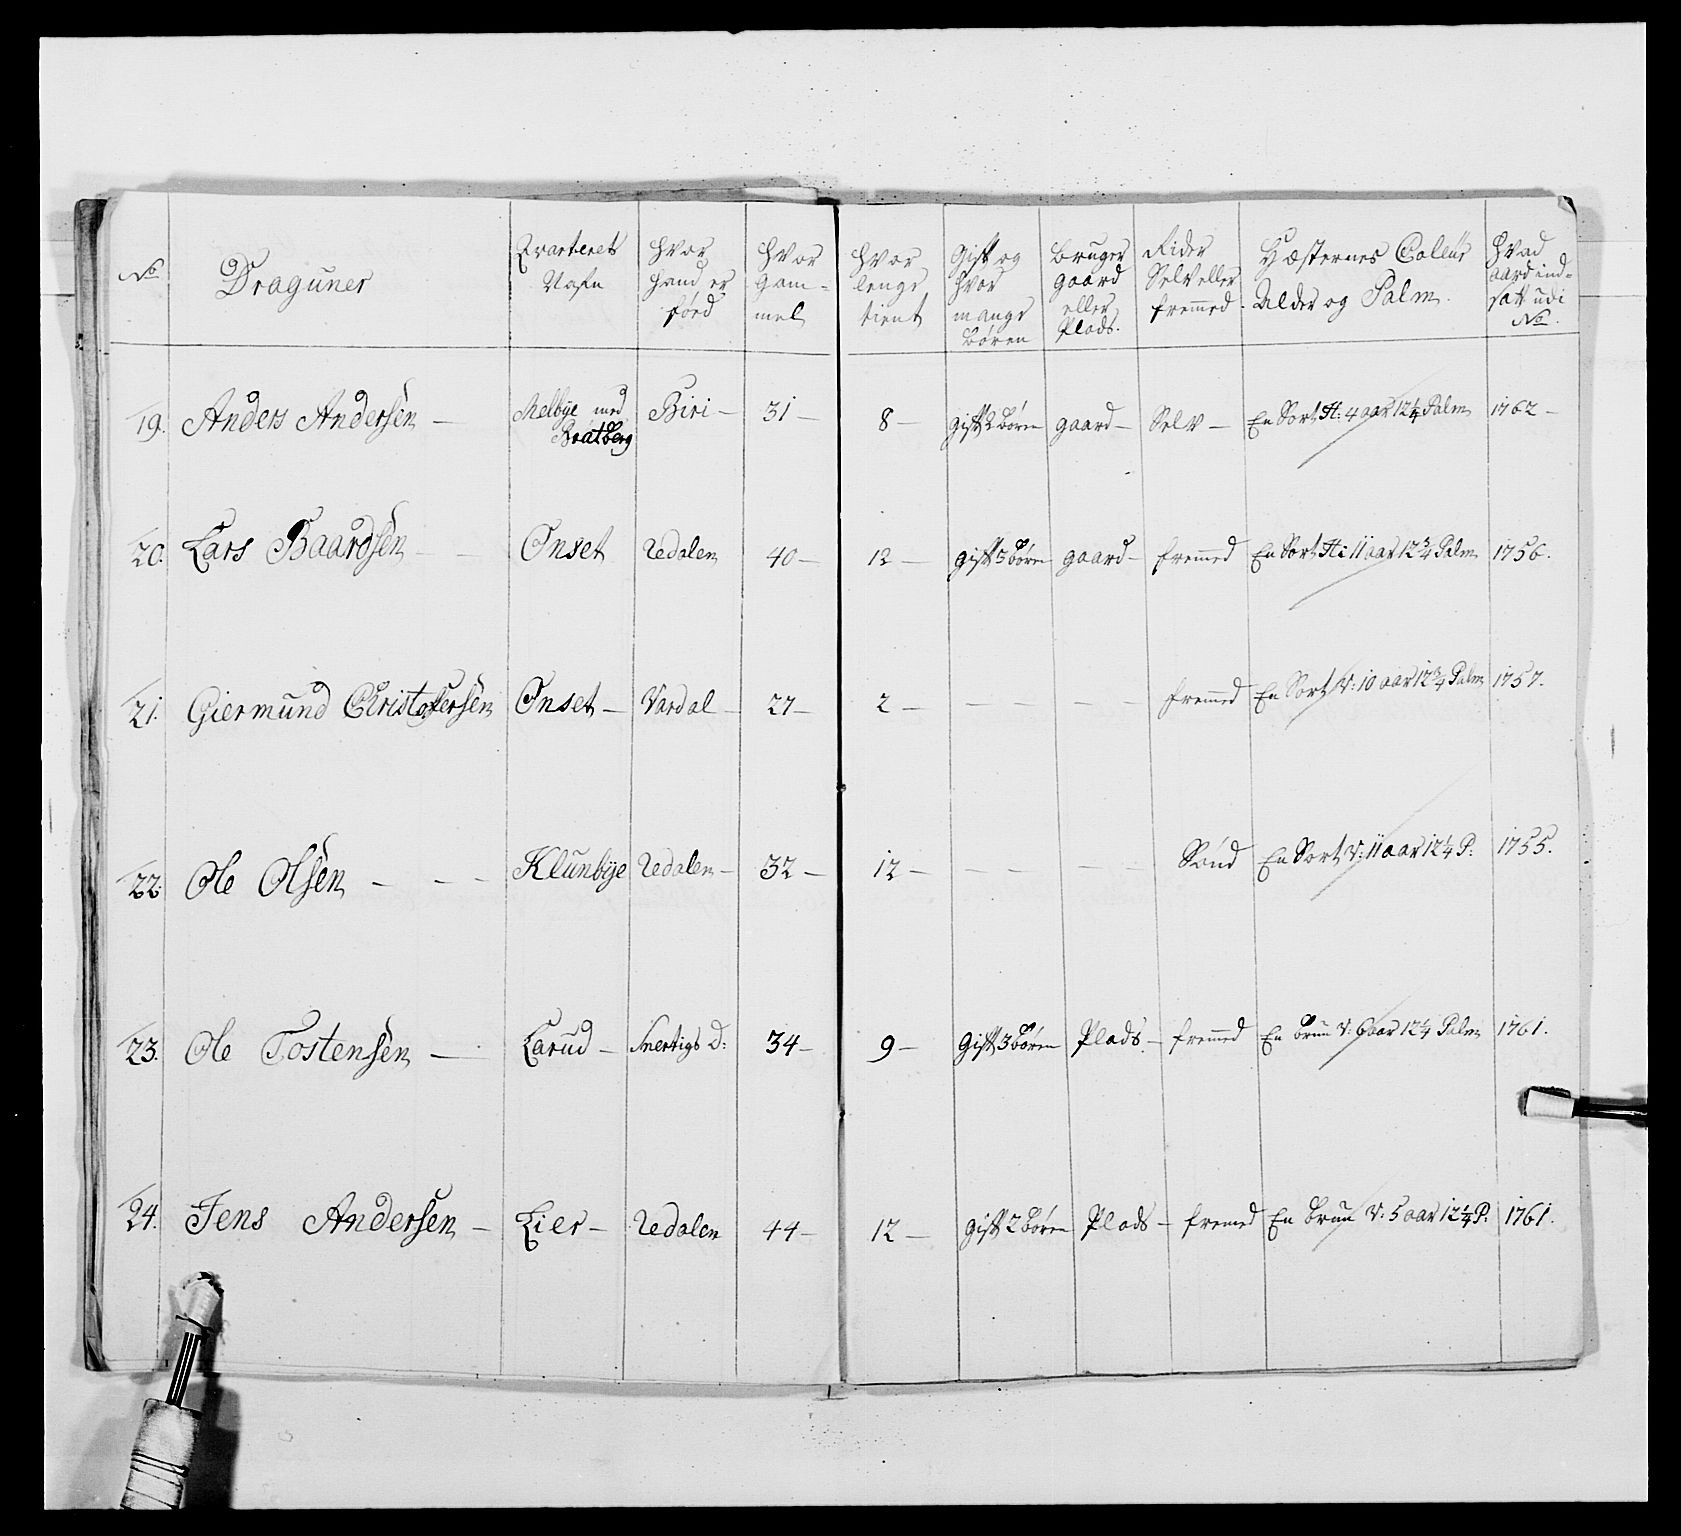 No
Draguner
Qvarterets Nafn
Hvor hand er föed
Hvor Gam- mel
Hvor lenge tient
Gift og hvor mange Börn
Bruger gaard eller Plads.
Rider Selv eller fremmed.
Hæsternes Coleur Alder og Palm.
Hvad aar d ind- satt udi No.
19. Anders Andersen — Melbÿe med Bratberg Biri — 31 — 8 — gift 2 Börn gaard — Selv — En Sort H: 4 aar 12 1/4 Palm 1762 —
20. Lars Baardsen — — Onset Redalen 40 — 12 — gift 3 börn gaard — fremed En Sort H: 11 aar 12 3/4 Palm 1756.
21. Giermund Christofersen Onset — Vardal — 27 — 2 — — — — — fremed En Sort V: 10 aar 12 3/4 Palm 1757.
22. Ole Olsen — — — Klünbÿe Redalen — 32 — 12 — — — — — Sönd En Sort V: 11 aar 12 1/4 P: 1755.
23. Ole Tostensen — Larud — Snertigs D: 34 — 9 — Gift 3 börn Plads. — fremed En brun V: 6 aar 12 1/4 Palm 1761.
24. Jens Andersen — Lier — Redalen 44 — 12 — gift 2 börn Plads — fremed En brun V: 5 aar 12 1/4 P: 1761.